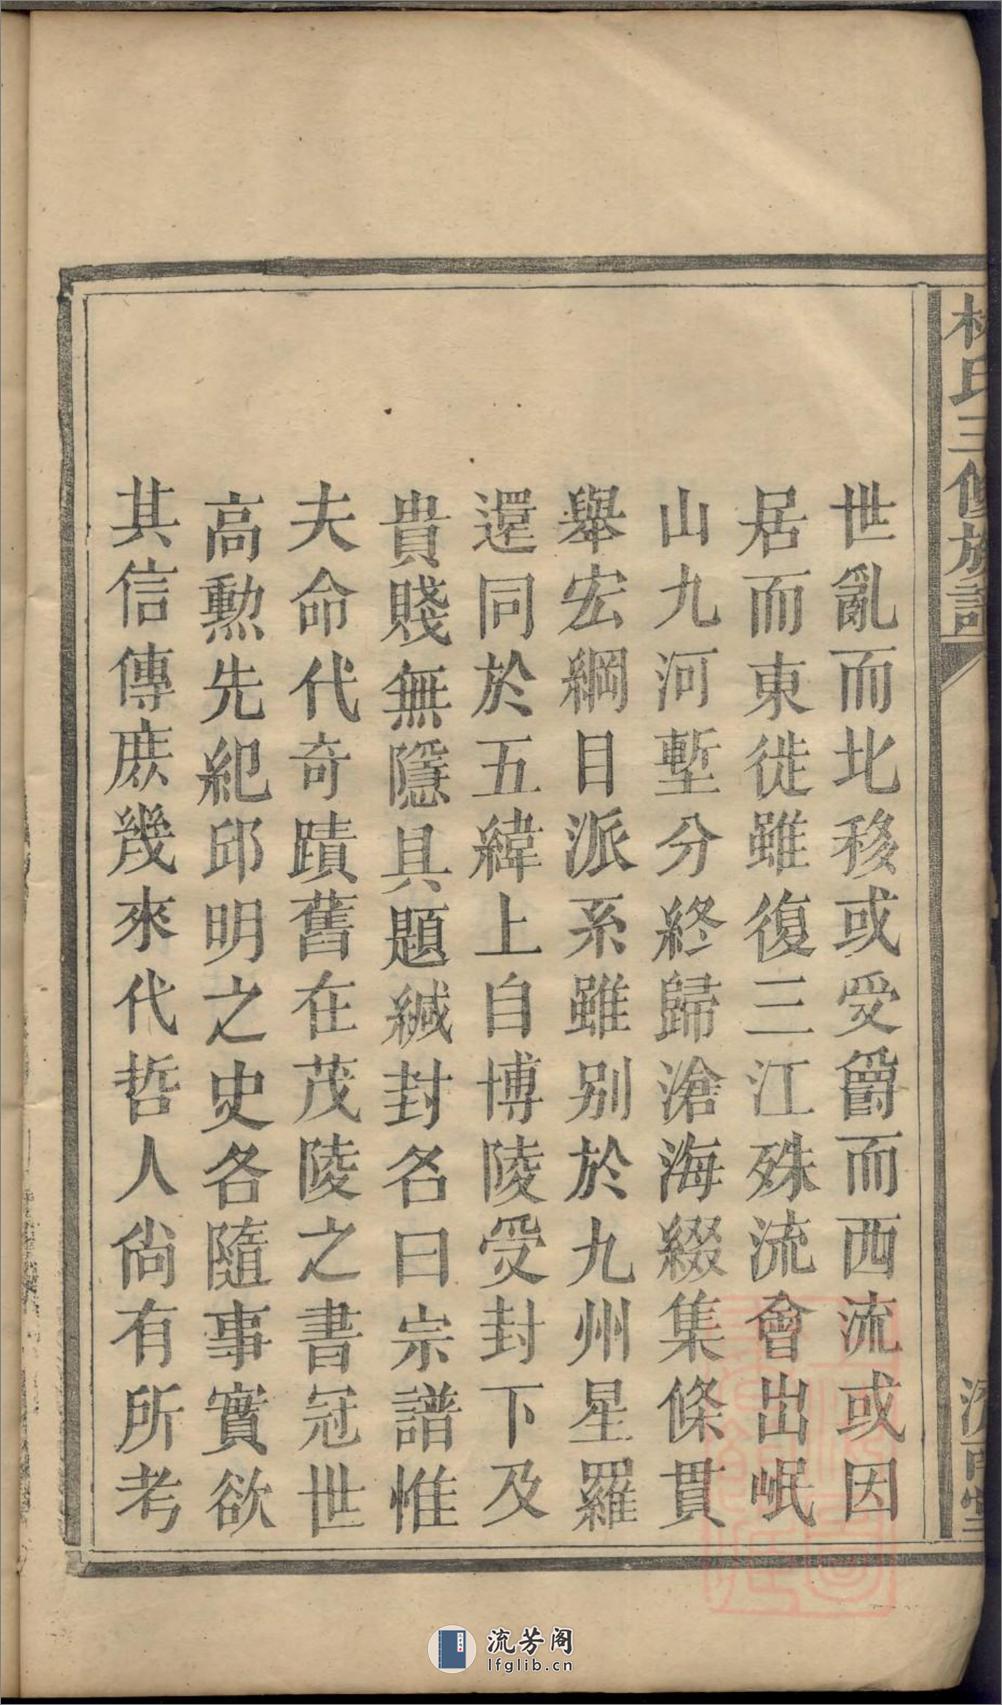 林氏三修族譜
濟南堂
世亂而北移或受爵而西流或因
居而東徙雖復三江殊流會出岷
山九河塹分終歸滄海綴集條貫
舉宏綱目派系雖別於九州星羅
還同於五緯上自博陵受封下及
貴賤無隱具題緘封名曰宗譜惟
夫命代奇蹟舊在茂陵之書冠世
高勲先紀邱明之史各隨事實欲
其信傳庶幾來代哲人尙有所考
流芳阁
lfglib.cn